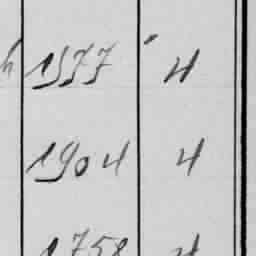 h 1577 " 4
1904 4
1758 4